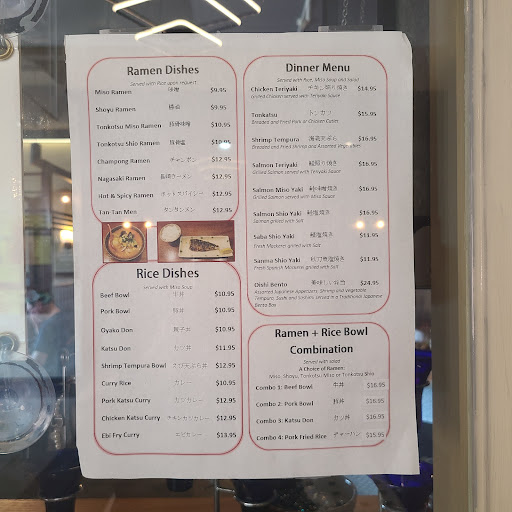 Ramen Dishes
Served with Rice upon request
Miso Ramen 味噌 $9.95
Shoyu Ramen 醤油 $9.95
Tonkotsu Miso Ramen 豚骨味噌 $10.95
Tonkotsu Shio Ramen 豚骨塩 $10.95
Champong Ramen チャンポン $12.95
Nagasaki Ramen 長崎ラーメン $12.95
Hot & Spicy Ramen ホットスパイシー $12.95
Tan Tan Men タンタンメン $12.95
Rice Dishes
Served with Miso Soup
Beef Bowl 牛丼 $10.95
Pork Bowl 豚丼 $10.95
Oyako Don 親子丼 $10.95
Katsu Don カツ丼 $11.95
Shrimp Tempura Bowl 天丼 $12.95
Curry Rice カレー $10.95
Pork Katsu Curry カツカレー $12.95
Chicken Katsu Curry チキンカツカレー $12.95
Ebi Fry Curry エビカレー $13.95
Dinner Menu
Served with Rice, Miso Soup and salad
Chicken Teriyaki チキン照り焼き $14.95
Grilled Chicken served with Teriyaki Sauce
Tonkatsu トンカツ $15.95
Breaded and Fried Pork or Chicken Cutlet
Shrimp Tempura 海老天ぷら $16.95
Breaded and Fried Shrimp and Assorted Vegetables
Salmon Teriyaki 鮭照り焼き $16.95
Grilled Salmon served with Teriyaki Sauce
Salmon Miso Yaki 鮭味噌焼き $16.95
Grilled Salmon served with Miso Sauce
Salmon Shio Yaki 鮭塩焼き $16.95
Salmon grilled with Salt
Saba Shio Yaki 鯖塩焼き
Fresh Mackerel grilled with Salt
Sanma Shio Yaki 秋刀魚塩焼き $11.95
Fresh Spanish Mackerel grilled with Salt
Oishi Bento 美味しい弁当 $24.95
Assorted Japanese Appetizers, Shrimp and Vegetable
Tempura, Sushi and Sashimi served in a Traditional Japanese
Bento Box
Ramen + Rice Bowl
Combination
Served with salad
A Choice of Ramen:
Miso, Shoyu, Tonkotsu Miso or Tonkotsu Shio
Combo 1: Beef Bowl 牛丼 $16.95
Combo 2: Pork Bowl 豚丼 $16.95
Combo 3: Katsu Don カツ丼 $16.95
Combo 4: Pork Fried Rice チャーハン $15.95